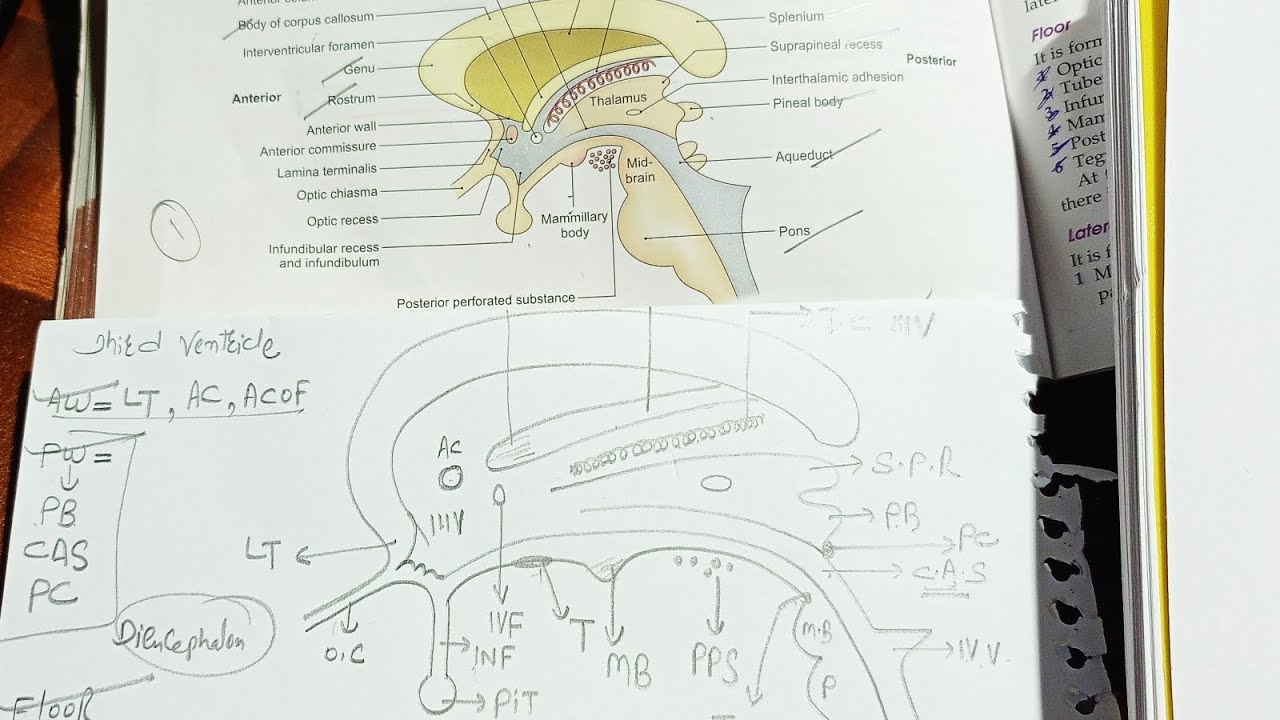 Body of corpus callosum
Interventricular foramen
Genu
Anterior
Rostrum
Anterior wall
Anterior commissure
Lamina terminalis
Optic chiasma
Optic recess
Infundibular recess
and infundibulum
Splenium
Suprapineal recess
Posterior
Interthalamic adhesion
Pineal body
Aqueduct
Pons
Thalamus
Mid-
brain
Mammillary
body
Posterior perforated substance
1
Floor
It is form
Optic
Tube
3 Infun
4 Mam
5 Post
6 Teg
At
there
Later
It is f
1 M
Third Ventricle
AW = LT, AC, ACOF
PW =
PB
CAS
PC
Diencephalon
FLOOR
AC
LT
O.C
IVF
INF
PiT
T
MB
PPS
M.B
P
S.P.R
P.B
PC
C.A.S
I.V.V.